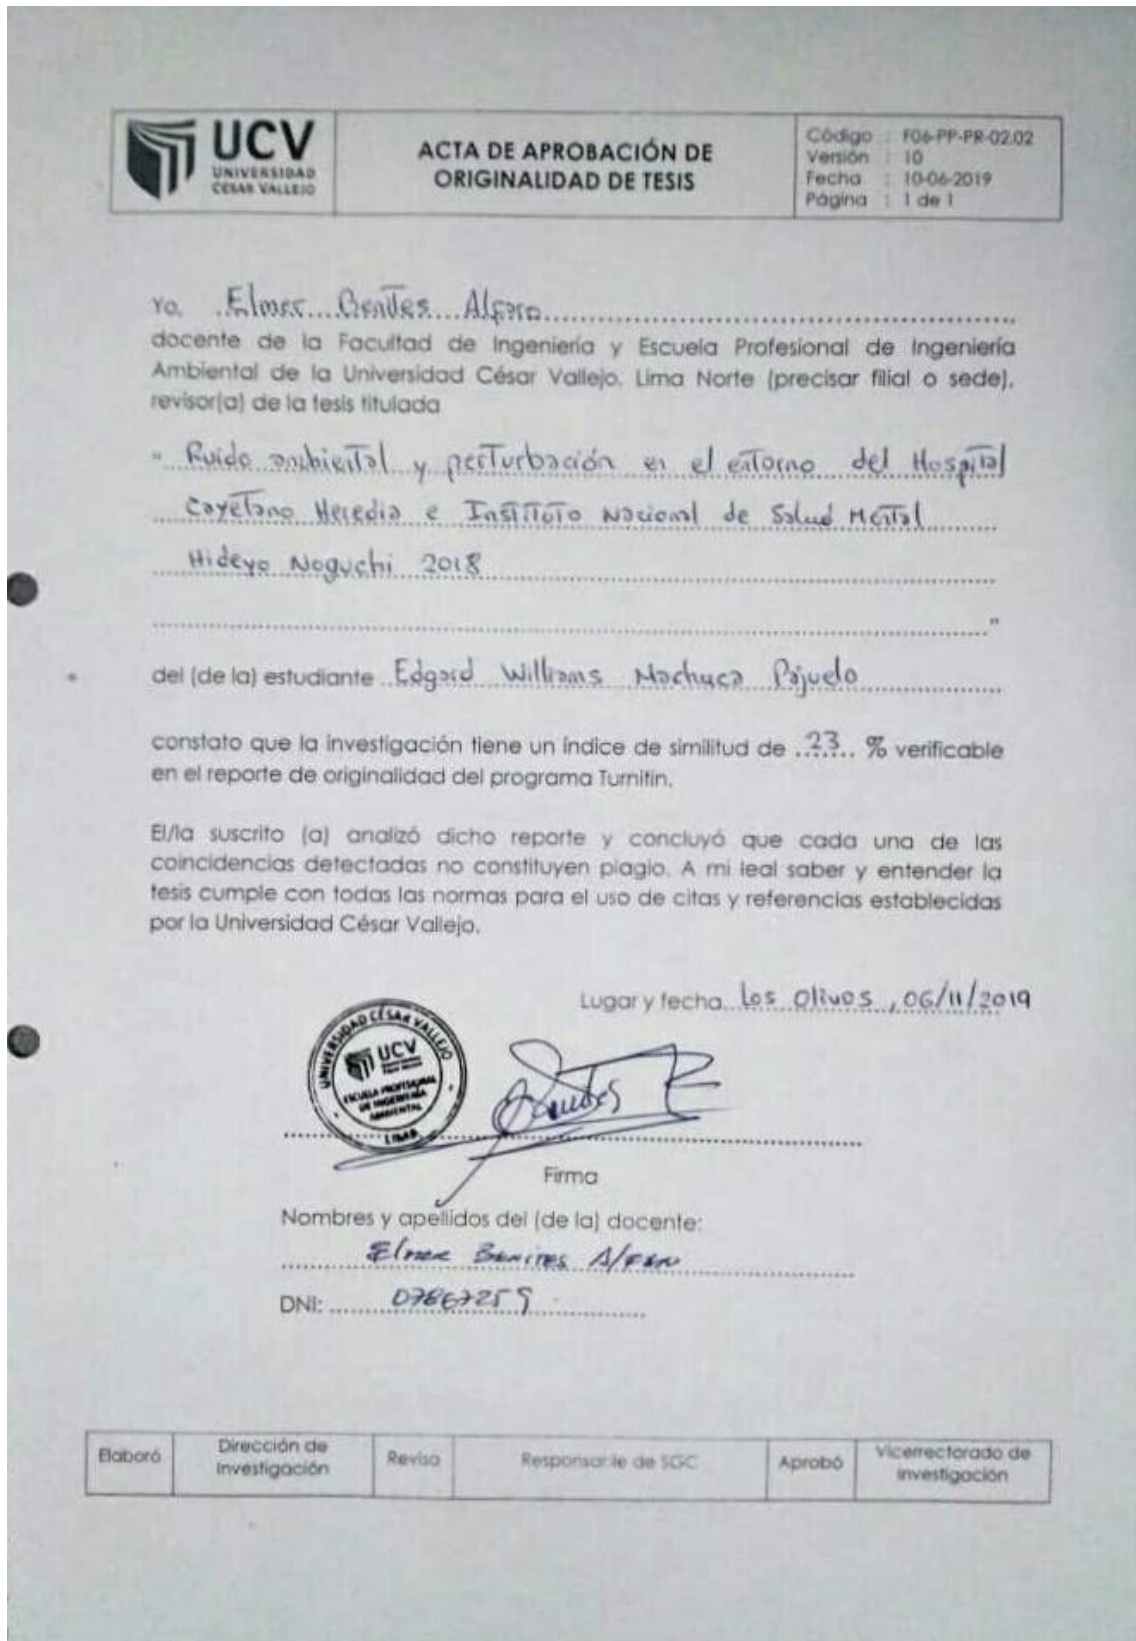 UCV
UNIVERSIDAD
CÉSAR VALLEJO
ACTA DE APROBACIÓN DE
ORIGINALIDAD DE TESIS
Código : F06-PP-PR-02.02
Versión : 10
Fecha : 10-06-2019
Página : 1 de 1
Yo, Elmer Benites Alfaro
docente de la Facultad de Ingeniería y Escuela Profesional de Ingeniería
Ambiental de la Universidad César Vallejo, Lima Norte (precisar filial o sede),
revisor(a) de la tesis titulada
" Ruido ambiental y perturbación en el entorno del Hospital
Cayetano Heredia e Instituto Nacional de Salud Mental
Hideyo Noguchi 2018
"
del (de la) estudiante Edgard Williams Machuca Pajuelo
constato que la investigación tiene un índice de similitud de 23 % verificable
en el reporte de originalidad del programa Turnitin.
El/la suscrito (a) analizó dicho reporte y concluyó que cada una de las
coincidencias detectadas no constituyen plagio. A mi leal saber y entender la
tesis cumple con todas las normas para el uso de citas y referencias establecidas
por la Universidad César Vallejo.
Lugar y fecha Los Olivos, 06/11/2019
UNIVERSIDAD CÉSAR VALLEJO
UCV
ESCUELA PROFESIONAL
DE INGENIERÍA
AMBIENTAL
LIMA
Firma
Nombres y apellidos del (de la) docente:
Elmer Benites Alfaro
DNI: 07867259
Elaboró
Dirección de
Investigación
Revisó
Responsable de SGC
Aprobó
Vicerrectorado de
Investigación